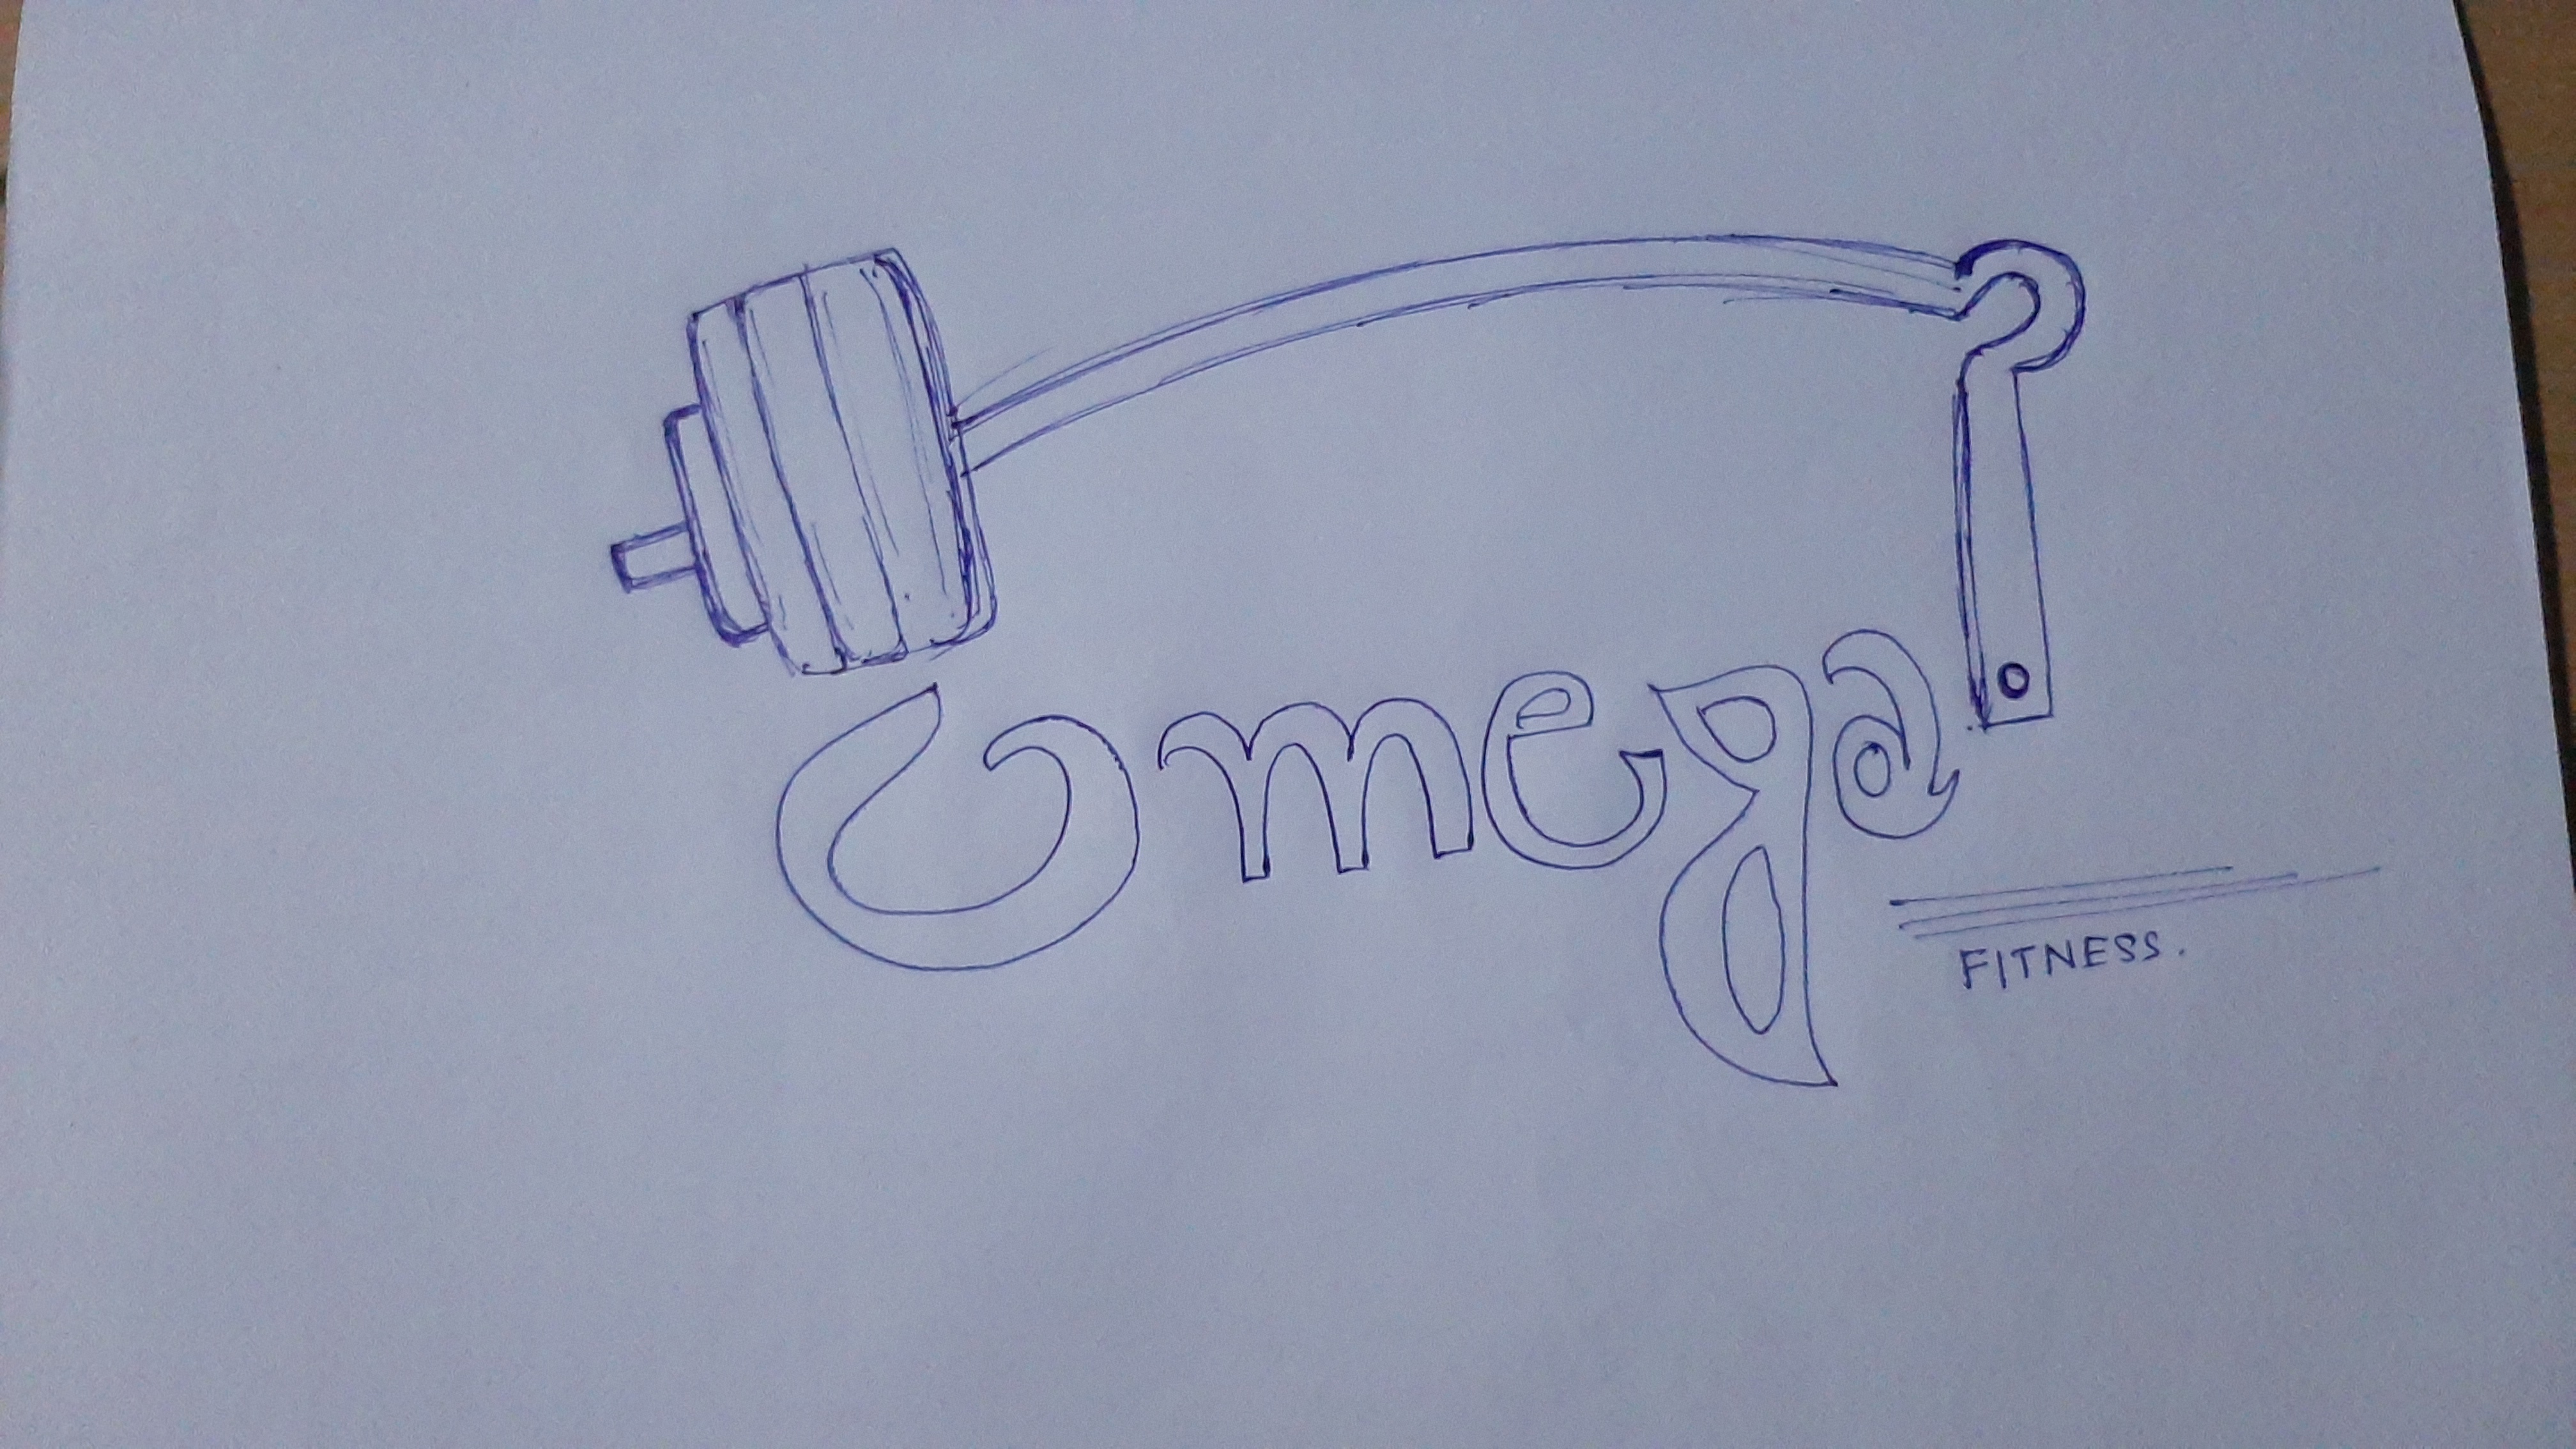 Omega
FITNESS.